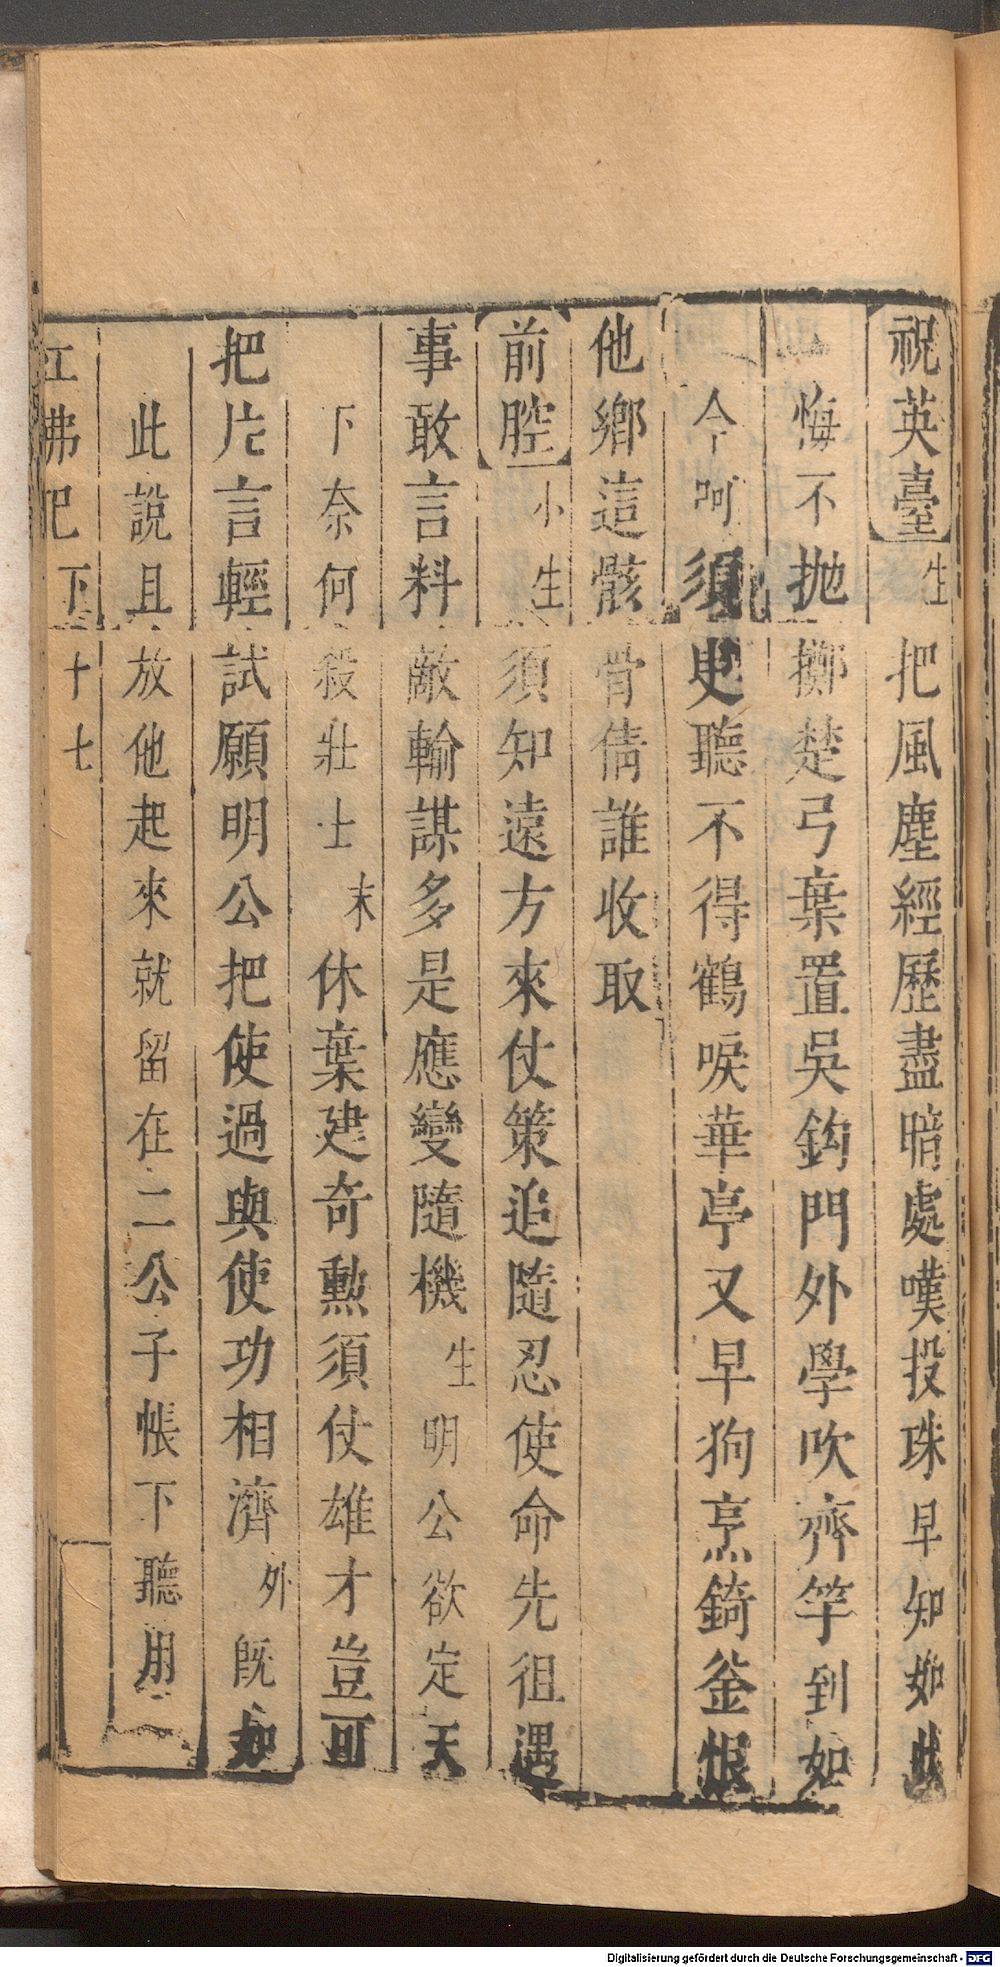 祝英臺生把風塵經歷盡暗處嘆投珠早知如此
悔不拋擲楚弓棄置吳鈎門外學吹齊竽到如
今呵須臾聽不得鶴唳華亭又早狗烹錡釜恨
他鄉這骸骨倩誰收取
前腔小生須知遠方來仗策追隨忍使命先徂遇
事敢言料敵輸謀多是應變隨機生明公欲定天
下奈何殺壯士末休棄建奇勲須仗雄才豈可
把片言輕試願明公把使過與使功相濟外既如
此說且放他起來就留在二公子帳下聽用
紅拂記下十七
Digitalisierung gefördert durch die Deutsche Forschungsgemeinschaft - DFG